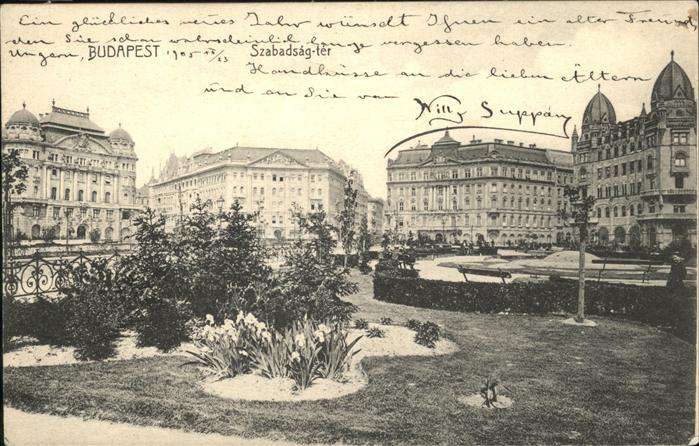 Ein glückliches neues Jahr wünscht Ihnen ein alter Freund,
den Sie schon wahrscheinlich lange vergessen haben.
Ungarn, BUDAPEST 1905 XII/23 Szabadság-tér
Handküsse an die lieben Ältern
und an Sie von Willy Suppán